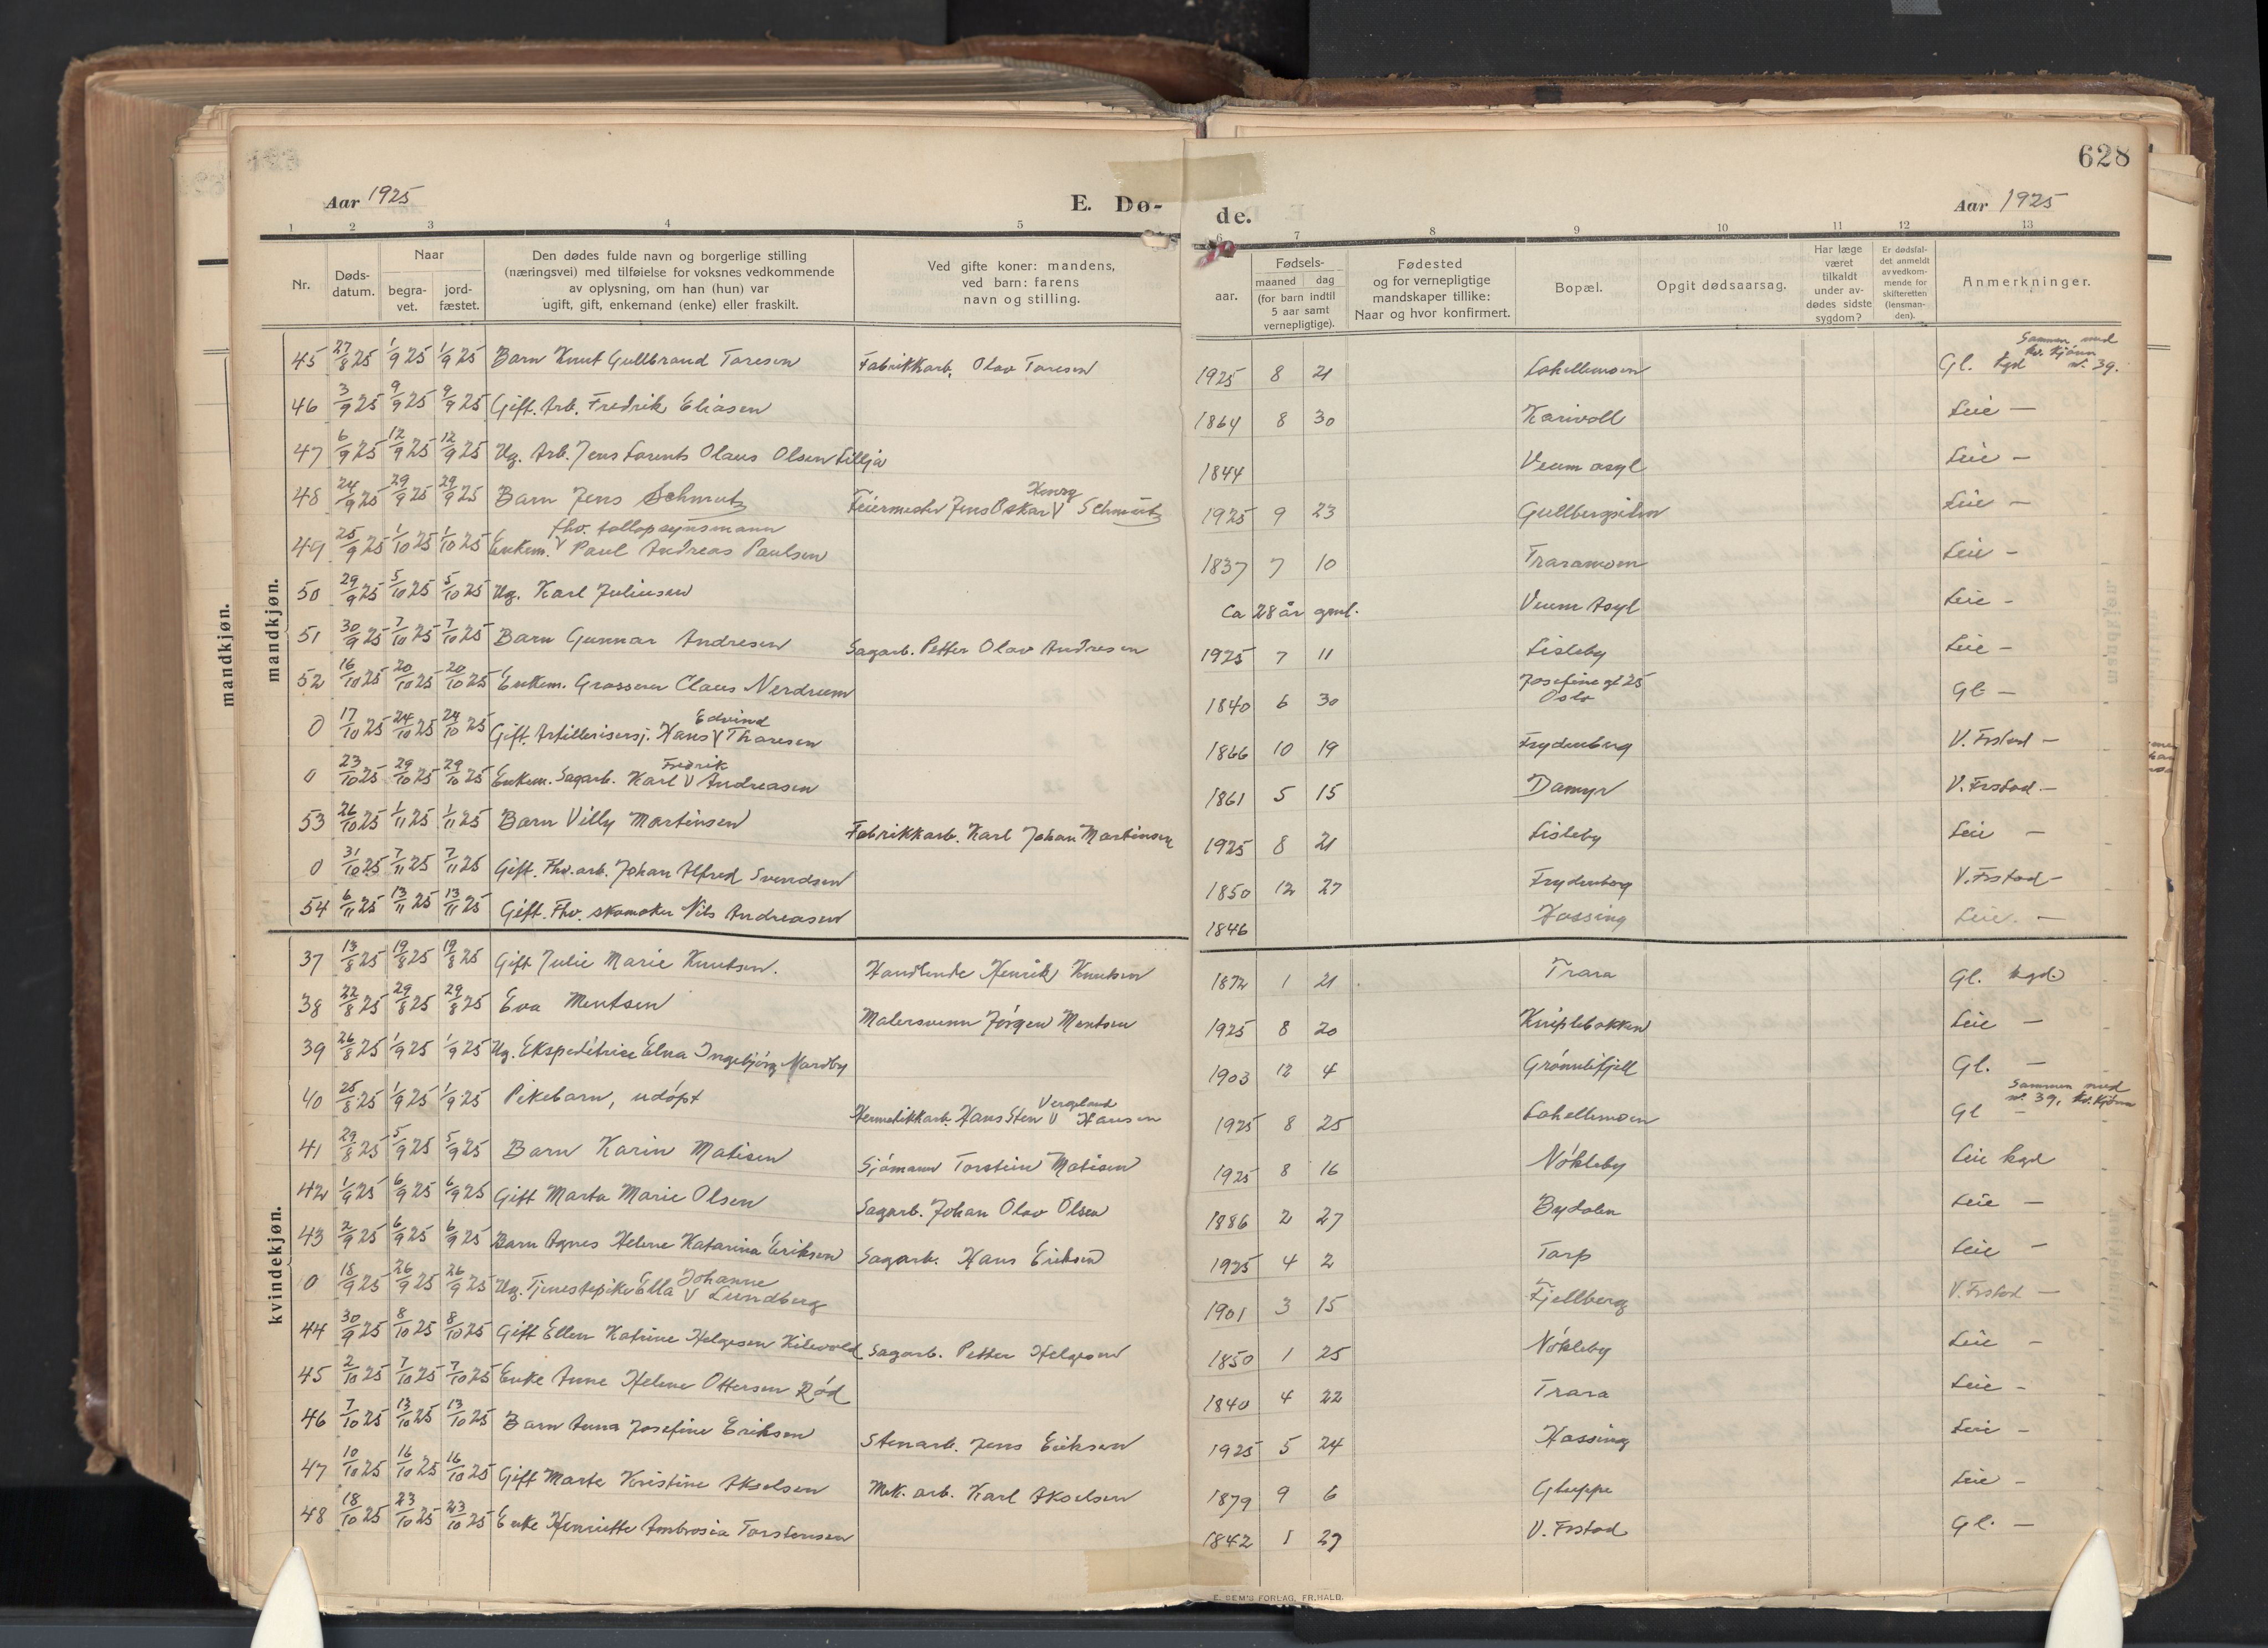 628
Aar 1925 E. Dø- de. Aar 1925
1 2 3 4 5 6 7 8 9 10 11 12 13
Nr. Døds-datum. Naar begra-vet. jord-fæstet. Den dødes fulde navn og borgerlige stilling (næringsvei) med tilføielse for voksnes vedkommende av oplysning, om han (hun) var ugift, gift, enkemand (enke) eller fraskilt. Ved gifte koner: mandens, ved barn: farens navn og stilling. Fødsels- aar. maaned dag (for barn indtil 5 aar samt vernepligtige). Fødested og for vernepligtige mandskaper tillike: Naar og hvor konfirmert. Bopæl. Opgit dødsaarsag. Har læge været tilkaldt under av-dødes sidste sygdom? Er dødsfal-det anmeldt av vedkom-mende for skifteretten (lensman-den). Anmerkninger.
mandkjøn.
mandkjøn.
45 27/8 25 1/9 25 1/9 25 Barn Knut Gullbrand Toresen Fabrikkarb. Olav Toresen 1925 8 21 Lahellemoen Gl. kgd Sammen med kv. kjønn nr. 39.
46 3/9 25 9/9 25 9/9 25 Gift. Arb. Fredrik Eliasen 1864 8 30 Karivoll Leie —
47 6/9 25 12/9 25 12/9 25 Ug. Arb. Jens Lorents Olaus Olsen Lillja 1844 Veum asyl Leie —
48 24/9 25 29/9 25 29/9 25 Barn Jens Schmutz Feiermester Jens Oskar V Henry Schmutz 1925 9 23 Gullbergsilen Leie —
49 25/9 25 1/10 25 1/10 25 Enkem. V fhv. tollopsynsmann Paul Andreas Paulsen 1837 7 10 Traramoen Leie —
50 29/9 25 5/10 25 5/10 25 Ug. Karl Juliusen Ca 28 år gml. Veum Asyl Leie —
51 30/9 25 7/10 25 7/10 25 Barn Gunnar Andresen Sagarb. Petter Olav Andresen 1925 7 11 Lisleby Leie —
52 16/10 25 20/10 25 20/10 25 Enkem. Grosserer Claus Nerdrum 1840 6 30 Josefine gt 25 Oslo Gl —
0 17/10 25 24/10 25 24/10 25 Gift. Artillerisersj. Hans V Edvind Thoresen 1866 10 19 Frydenberg V. Frstad —
0 23/10 25 29/10 25 29/10 25 Enkem. Sagarb. Karl V Fredrik Andreasen 1861 5 15 Damyr V. Frstad. —
53 26/10 25 1/11 25 1/11 25 Barn Villy Martinsen Fabrikkarb. Karl Johan Martinsen 1925 8 21 Lisleby Leie —
0 31/10 25 7/11 25 7/11 25 Gift. Fhv. arb. Johan Alfred Svendsen 1850 12 27 Frydenberg V. Frstad —
54 6/11 25 13/11 25 13/11 25 Gift. Fhv. skomaker Nils Andreasen 1846 Hassing Leie. —
kvindekjøn.
37 13/8 25 19/8 25 19/8 25 Gift Julie Marie Knutsen. Handlende Henrik Knutsen 1872 1 21 Trara Gl. kgd.
38 22/8 25 29/8 25 29/8 25 Eva Mentsen Malersvenn Jørgen Mentsen 1925 8 20 Kniplebakken Leie —
39 26/8 25 1/9 25 1/9 25 Ug. Ekspeditrise Elna Ingebjørg Mardby 1903 12 4 Grønnlifjell Gl. —
40 25/8 25 1/9 25 1/9 25 Pikebarn, udøpt Hermetikkarb. Hans Sten V Vergeland Hansen 1925 8 25 Lahellemoen Gl — Sammen med nr. 39, kv. kjønn
41 29/8 25 5/9 25 5/9 25 Barn Karin Matisen Sjømann Torstein Matisen 1925 8 16 Nøkleby Leie kgd
42 1/9 25 6/9 25 6/9 25 Gift Marta Marie Olsen Sagarb. Johan Olav Olsen 1886 2 27 Bydalen Leie —
43 2/9 25 6/9 25 6/9 25 Barn Agnes Helene Katarina Eriksen Sagarb. Hans Eriksen 1925 4 2 Torp Leie —
0 18/9 25 26/9 25 26/9 25 Ug. Tjenestepike Ella V Johanne Lundberg 1901 3 15 Fjellberg V. Frstad —
44 30/9 25 8/10 25 8/10 25 Gift Ellen Katrine Helgesen Kilevold Sagarb. Petter Helgesen 1850 1 25 Nøkleby Leie —
45 2/10 25 7/10 25 7/10 25 Enke Anne Helene Ottersen Rød 1840 4 22 Trara Leie —
46 7/10 25 13/10 25 13/10 25 Barn Anna Josefine Eriksen Stenarb. Jens Eriksen 1925 5 24 Hassing Leie —
47 10/10 25 16/10 25 16/10 25 Gift Marte Kristine Akselsen Mek. arb. Karl Akselsen 1879 9 6 Gluppe Leie —
48 18/10 25 23/10 25 23/10 25 Enke Henriette Ambrosia Torstensen 1842 1 27 V. Frstad Gl. —
E. SEM'S FORLAG, FR.HALD.